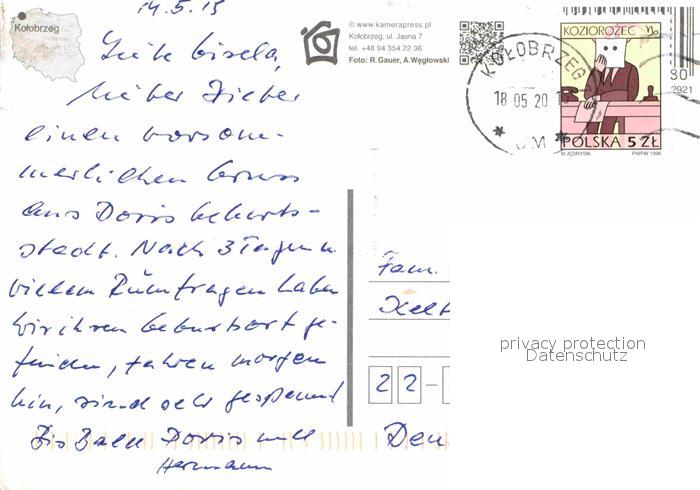 14.5.15
Kołobrzeg
Liebe Gisela,
lieber Dieter
einen vorsom-
merlichen Gruss
aus Doris Geburts-
stadt. Nach 3 Tagen u.
vielem Rumfragen haben
wir ihren Geburtsort ge-
funden, fahren morgen
hin, sind sehr gespannt
Bis Bald Doris und
Hermann
© www.kamerapress.pl
Kołobrzeg, ul. Jasna 7
tel. +48 94 354 22 36
Foto: R. Gauer, A. Węglowski
KOŁOBRZEG
18 05 20 1
UM
KOZIOROŻEC
POLSKA 5 ZŁ
M. JĘDRYSIK PWPW 1996
2921
Fam.
22-
Deu
privacy protection
Datenschutz